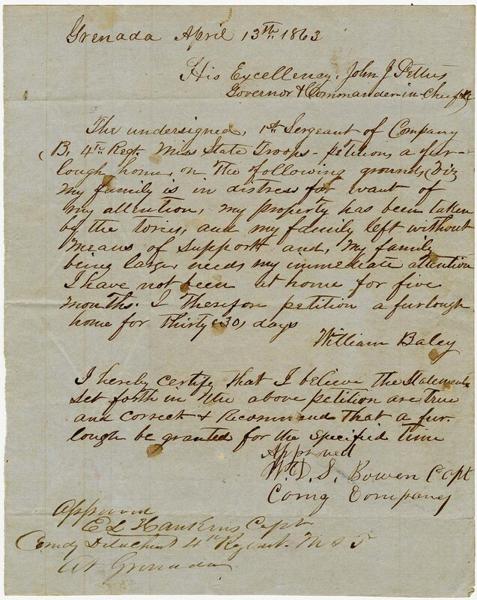 Grenada April 13th 1863
His Excellency, John J Pettus
Governor & Commander-in-Chief &c
The undersigned, 1st Sergeant of Company
B, 4th Regt Miss State Troops - petitions a fur-
lough home, on the following grounds, Viz
My family is in distress for want of
my attention, my property has been taken
by the tories, and my family left without
means of support and, My family
being large, needs my immediate attention
I have not been at home for five
months. I therefore petition a furlough
home for thirty (30) days
William Baley
I hereby certify that I believe the Statements
set forth in the above petition are true
and correct & recommend that a fur-
lough be granted for the specified time
Approved
W. D. S. Bowen Capt
Comg Company
Approved
E L Hankins Capt
Comdg Detachment 4th Regiment M S T
At Grenada